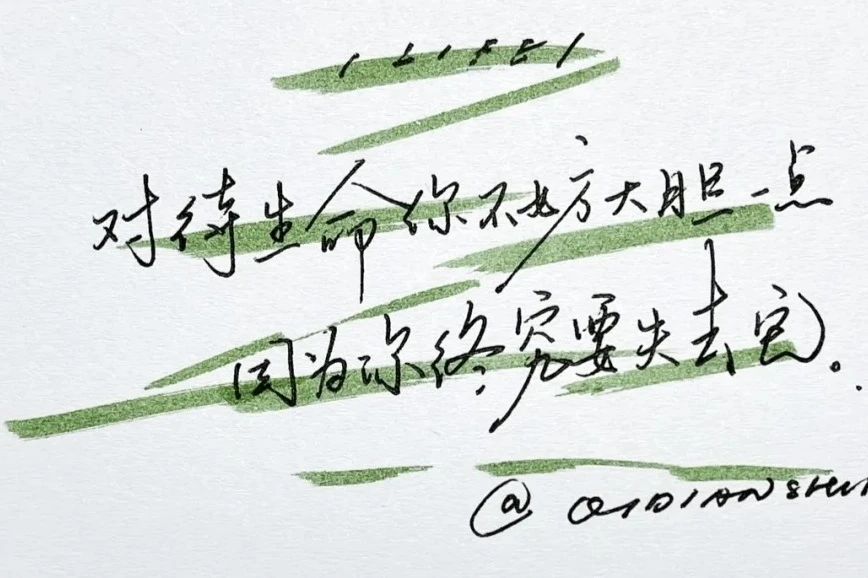 对待生命你不妨大胆一点
因为你终究要失去它。